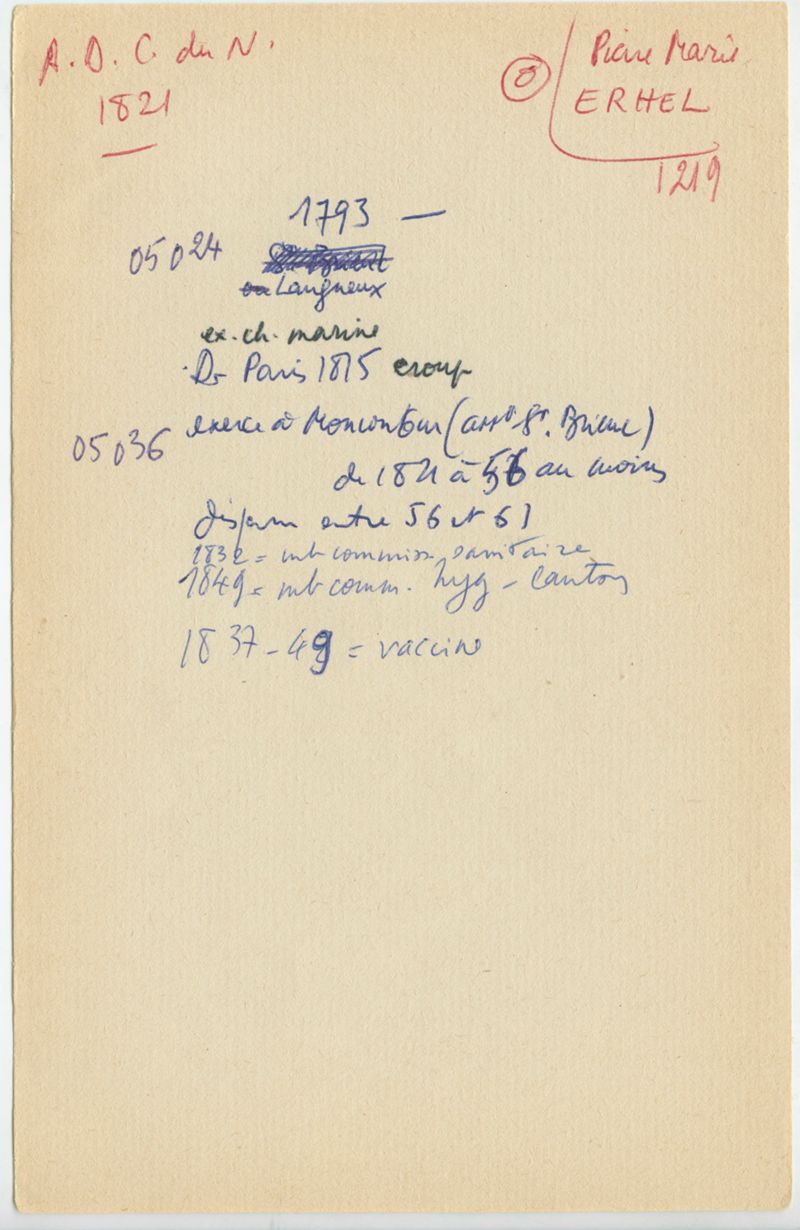 A. D. C. du N.
1821
8
Pierre Marie
ERHEL
1219
1793 —
05024
Langueux
ex. ch. marine
Dr Paris 1815 croup
05036
exerce à Moncontour (arrt St. Brieuc)
de 1821 à 56 au moins
disparu entre 56 et 61
1832 = mb commiss. sanitaire
1849 = mb comm. hyg - canton
1837-49 = vaccine